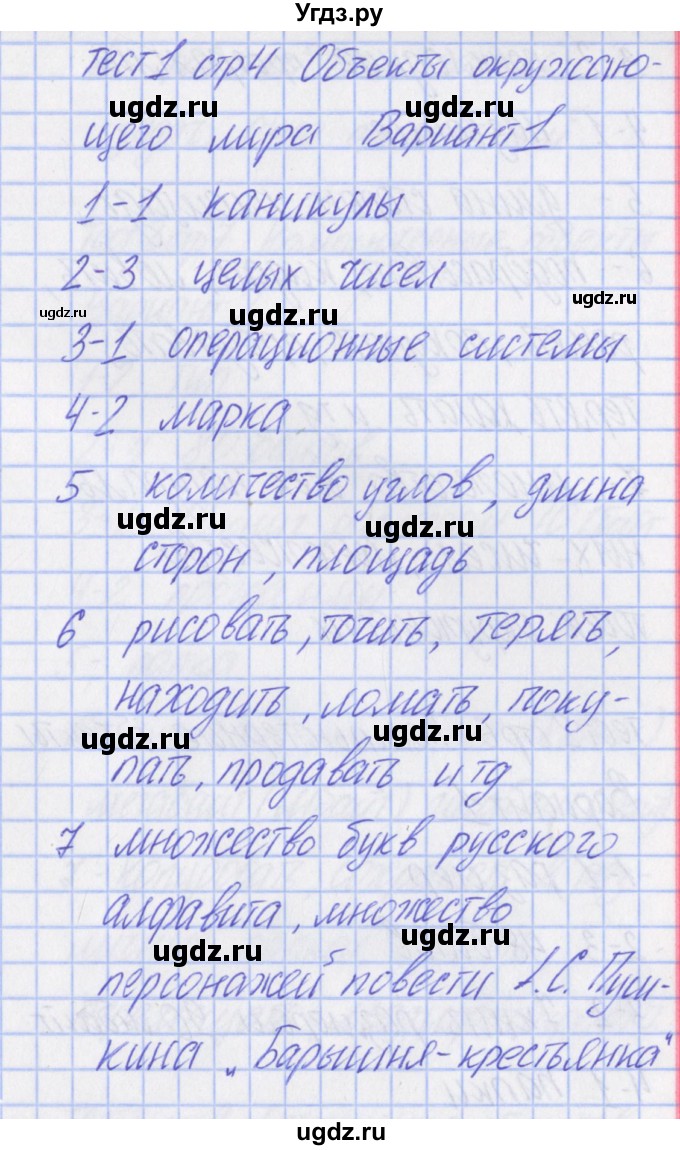 Угдз.ру
тест1 стр4 Объекты окружаю-
ugdz.ru ugdz.ru
щего мира Вариант1
1-1 каникулы
2-3 целых чисел
ugdz.ru ugdz.ru ugdz.ru
3-1 операционные системы
4-2 марка
5 количество углов, длина
ugdz.ru ugdz.ru
сторон, площадь
6 рисовать, точить, терять,
находить, ломать, поку-
ugdz.ru ugdz.ru
пать, продавать и тд
7 множество букв русского
алфавита, множество
ugdz.ru ugdz.ru
персонажей повести А.С. Пуш-
кина "Барышня-крестьянка"
ugdz.ru